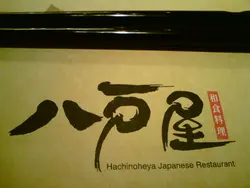 八戸屋
和食料理
Hachinoheya Japanese Restaurant